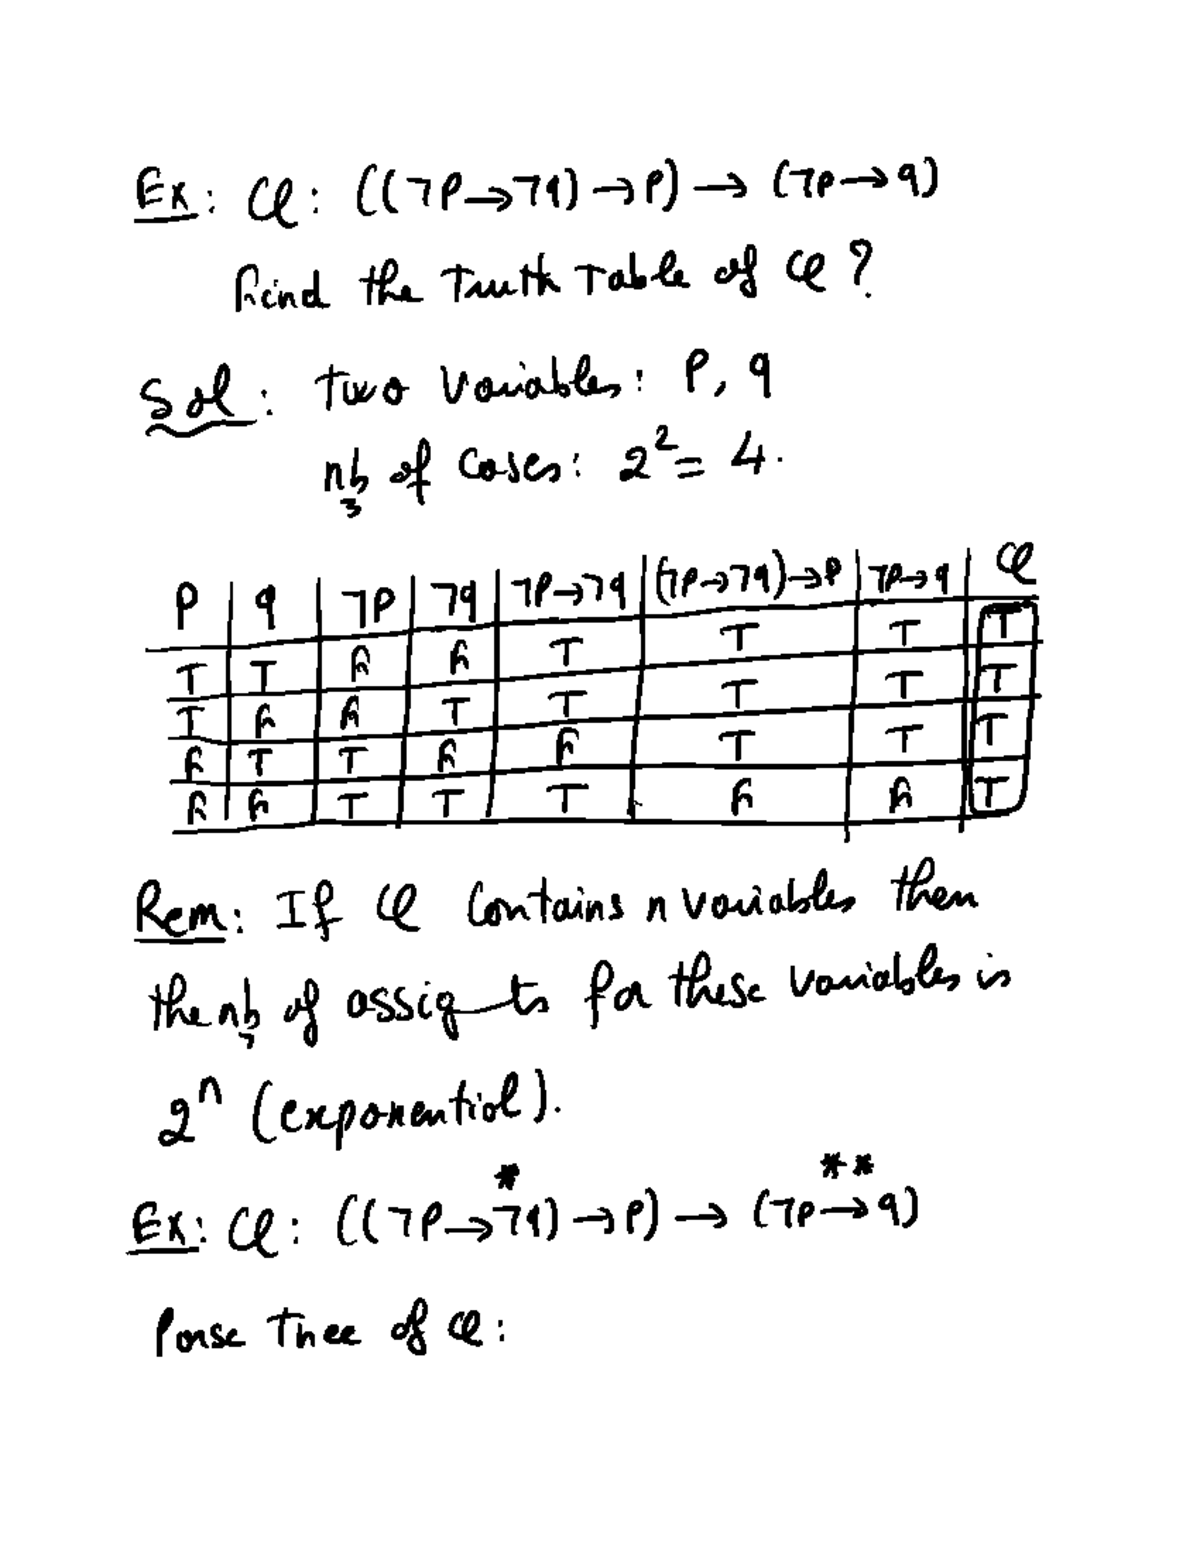 Ex: φ: ((¬P→¬q)→P)→(¬P→q)
Find the Truth Table of φ?
Sol: two variables: P, q
nb of cases: 2² = 4.
P | q | ¬P | ¬q | ¬P→¬q | (¬P→¬q)→P | ¬P→q | φ
T | T | F | F | T | T | T | T
T | F | F | T | T | T | T | T
F | T | T | F | F | T | T | T
F | F | T | T | T | F | F | T
Rem: If φ contains n variables then
the nb of assig_ts for these variables is
2ⁿ (exponential).
* **
Ex: φ: ((¬P→¬q)→P)→(¬P→q)
Parse Tree of φ: